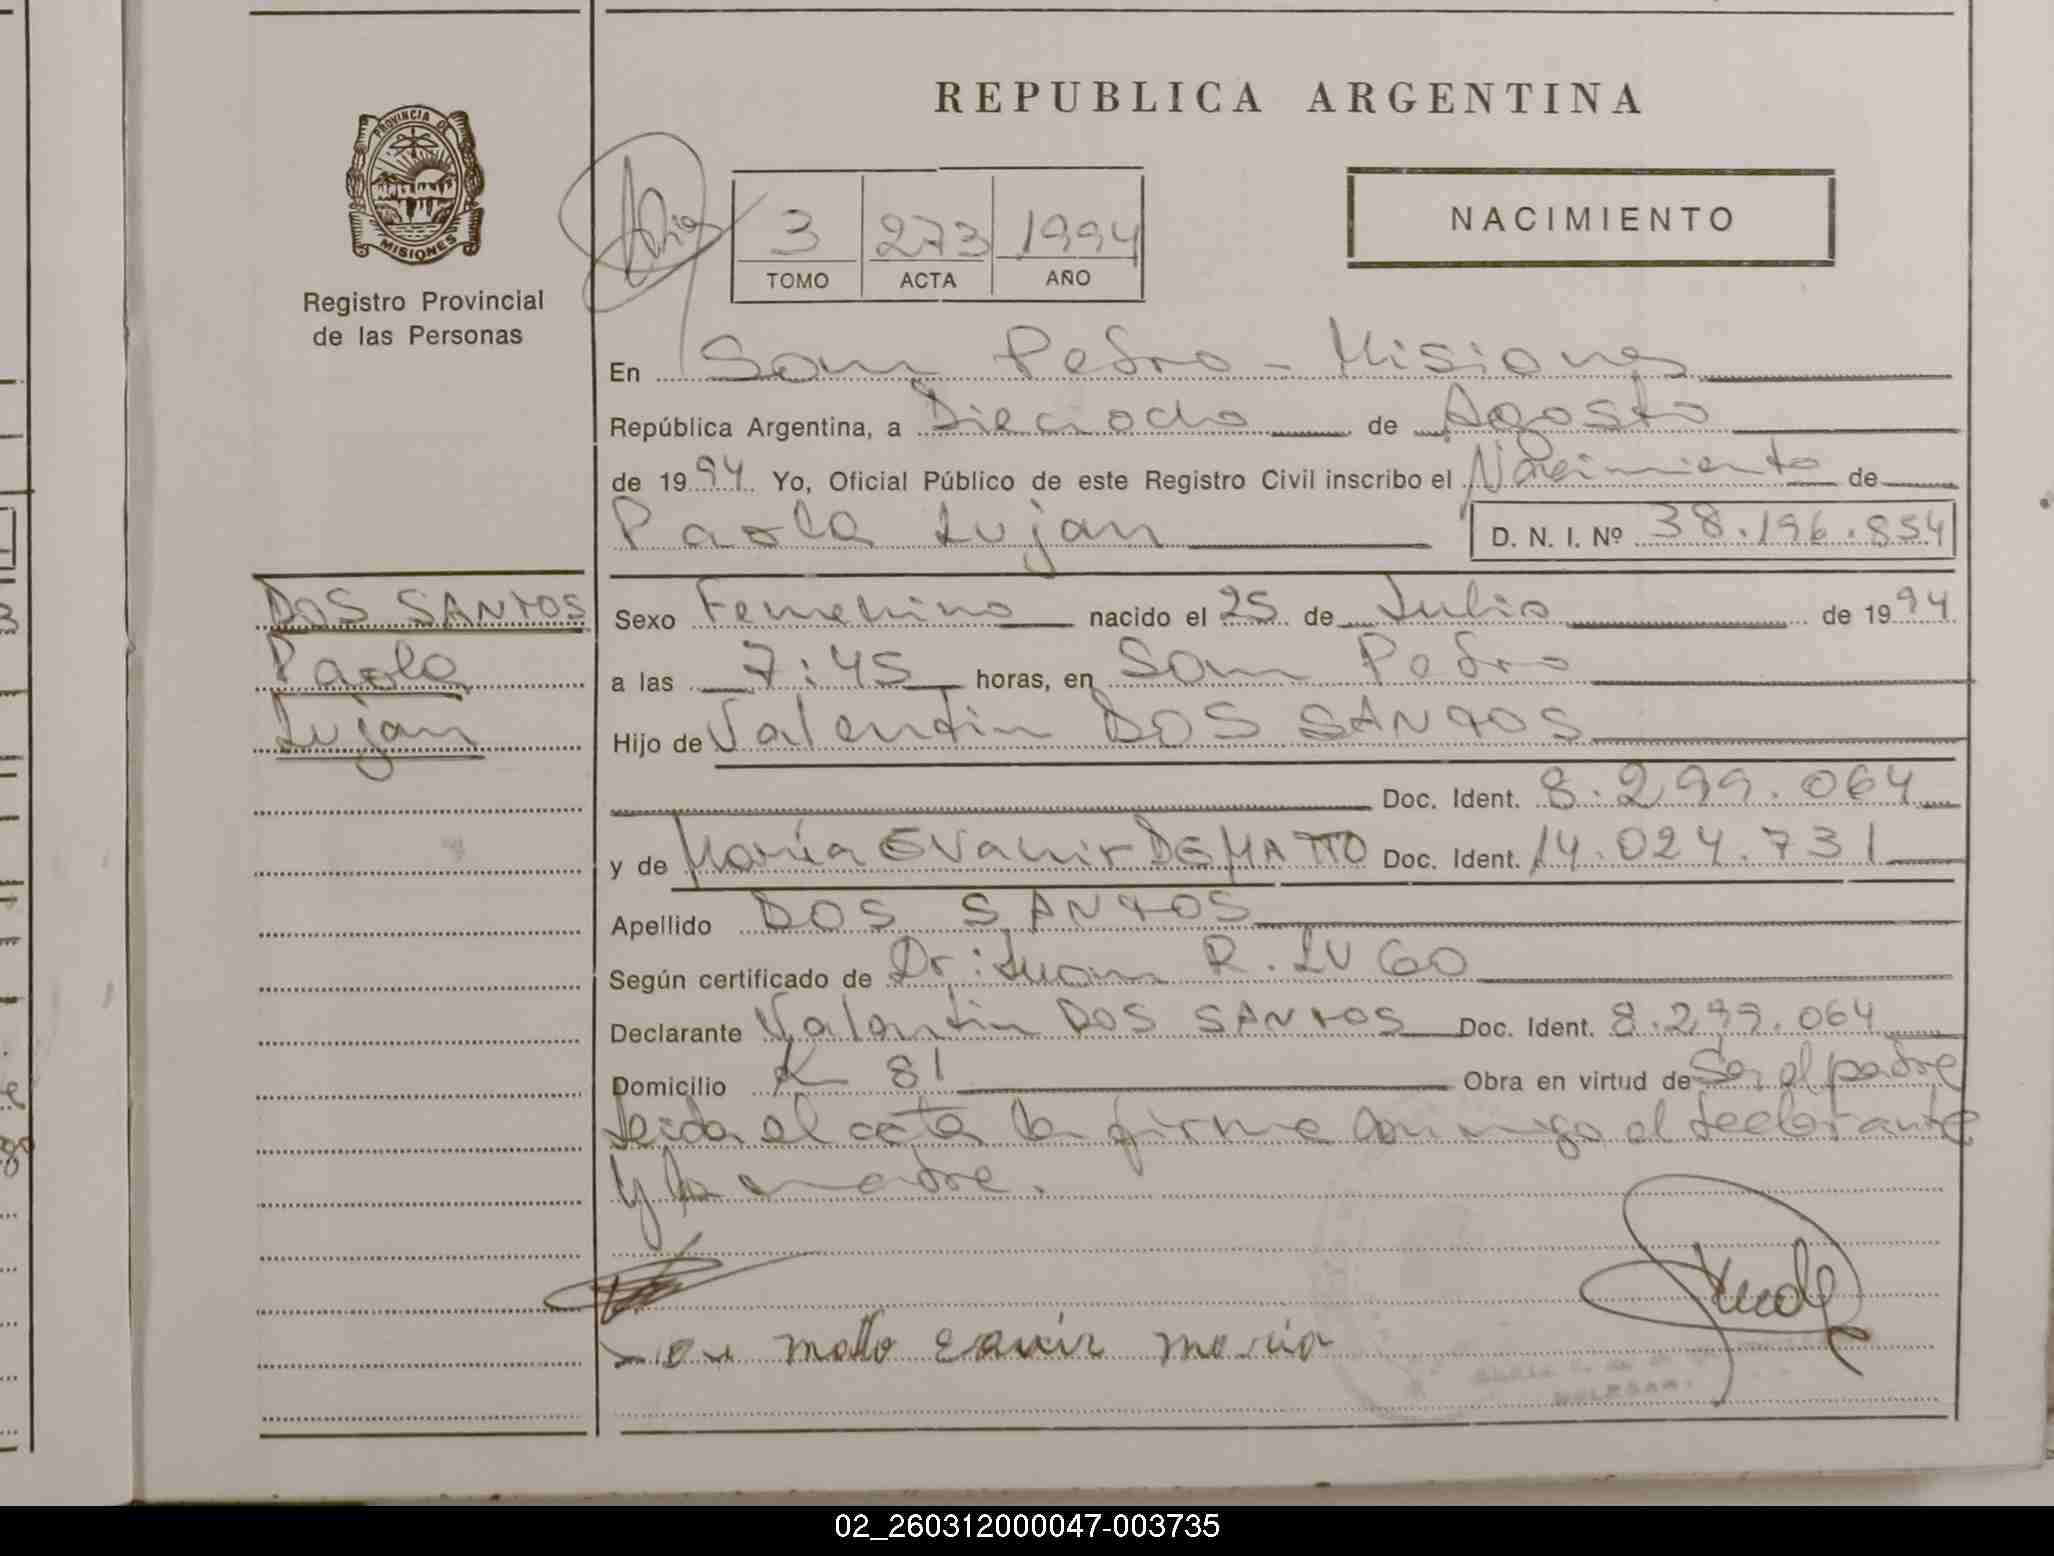 REPUBLICA ARGENTINA
PROVINCIA DE
MISIONES
Registro Provincial
de las Personas
3 273 1994
TOMO ACTA AÑO
NACIMIENTO
En San Pedro - Misiones
República Argentina, a Dieciocho de Agosto
de 1994 Yo, Oficial Público de este Registro Civil inscribo el Nacimiento de
Paola Lujan D. N. I. Nº 38.196.854
DOS SANTOS
Paola
Lujan
Sexo Femenino nacido el 25 de Julio de 1994
a las 7:45 horas, en San Pedro
Hijo de Valentin DOS SANTOS
Doc. Ident. 8.299.064
y de María Evanir DE MATTO Doc. Ident. 14.024.731
Apellido DOS SANTOS
Según certificado de Dr: Juan R. LUGO
Declarante Valentin DOS SANTOS Doc. Ident. 8.299.064
Domicilio K 81 Obra en virtud de Ser el padre
Leida el acta la firma conmigo el declarante
y la madre.
matto Evanir maria
02_260312000047-003735